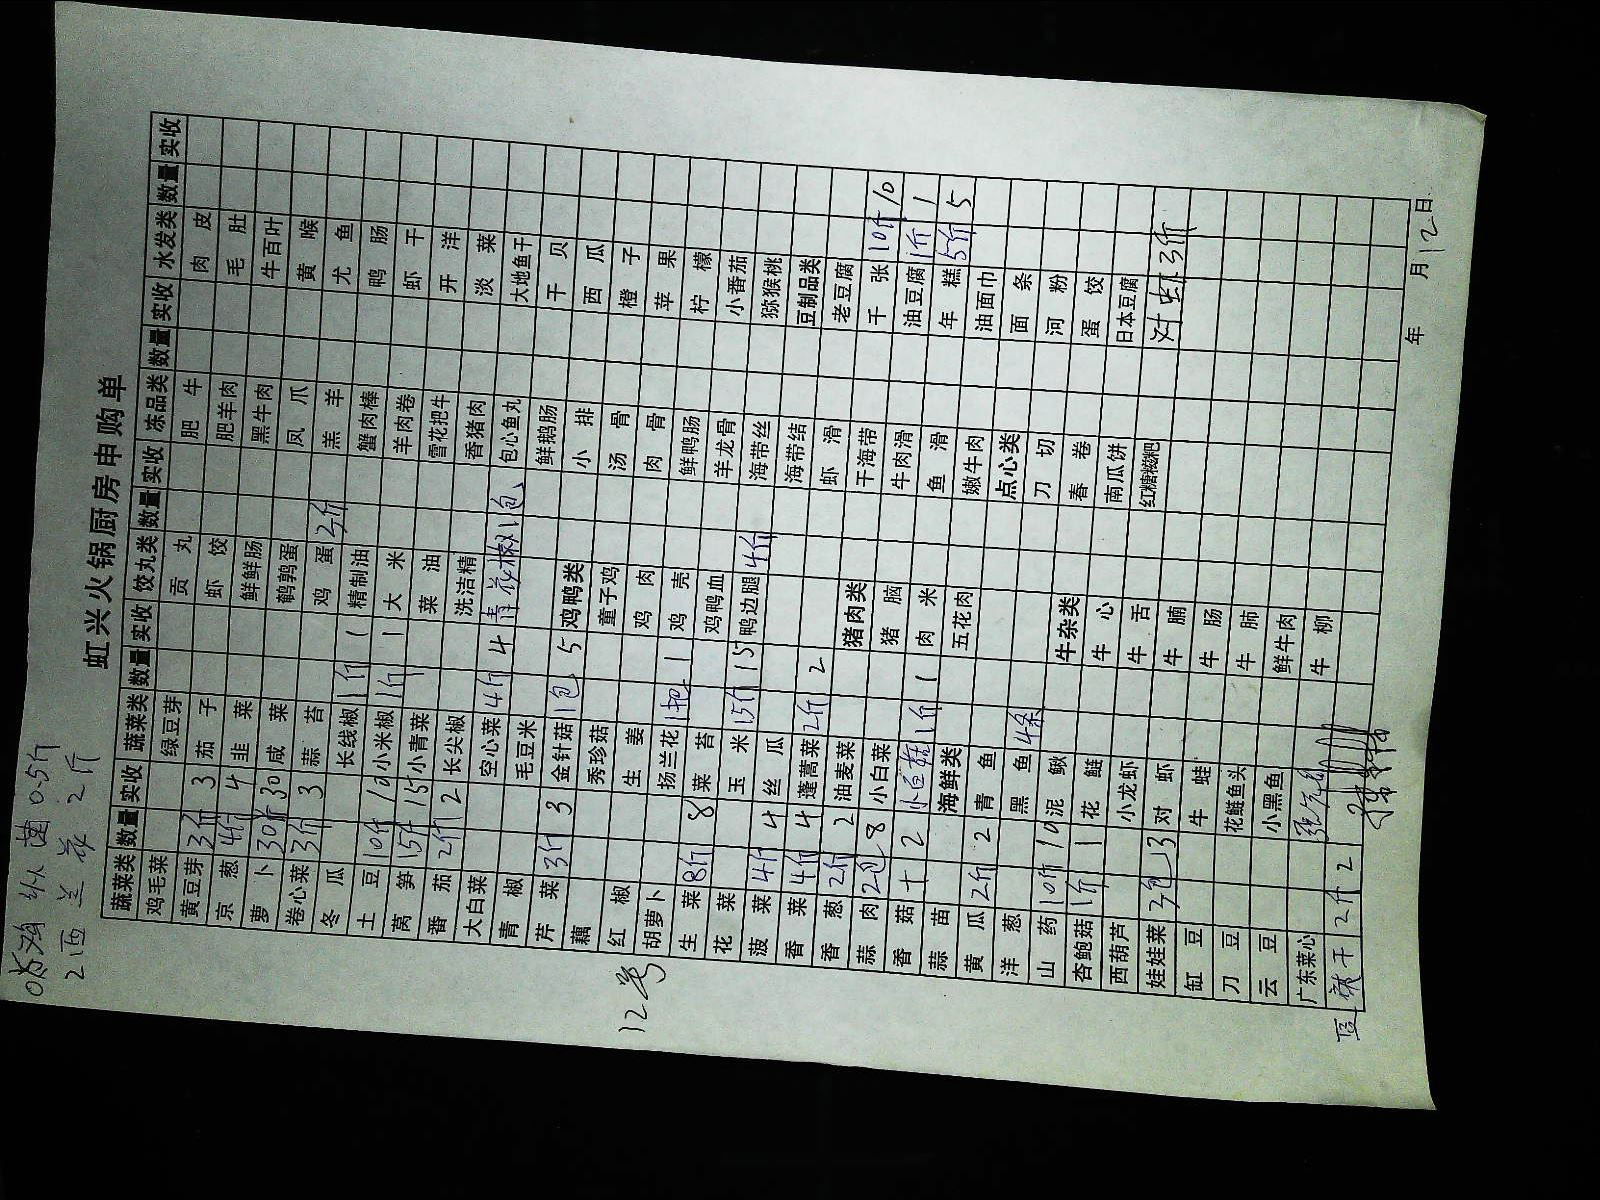 鸡纵菌 0.5斤
2 西兰花 2斤
虹兴火锅厨房申购单
蔬菜类 数量 实收 蔬菜类 数量 实收 饺丸类 数量 实收 冻品类 数量 实收 水发类 数量 实收
鸡毛菜 绿豆芽 贡丸 肥牛 肉皮
黄豆芽 3斤 3 茄子 虾饺 肥羊肉 毛肚
京葱 4斤 4 韭菜 鲜鲜肠 黑牛肉 牛百叶
萝卜 30斤 30 咸菜 鹌鹑蛋 凤爪 黄喉
卷心菜 3斤 3 蒜苔 鸡蛋 3斤 羔羊 尤鱼
冬瓜 长线椒 1斤 1 精制油 蟹肉棒 鸭肠
土豆 10斤 10 小米椒 1斤 1 大米 羊肉卷 虾干
莴笋 15斤 15 小青菜 菜油 雪花把牛 开洋
番茄 2斤 2 长尖椒 洗洁精 香猪肉 淡菜
大白菜 空心菜 4斤 4 青花椒 1包 包心鱼丸 大地鱼干
青椒 毛豆米 鲜鹅肠 干贝
芹菜 3斤 3 金针菇 1包 5 鸡鸭类 小排 西瓜
藕 秀珍菇 童子鸡 汤骨 橙子
红椒 生姜 鸡肉 肉骨 苹果
胡萝卜 扬兰花 1把 1 鸡壳 鲜鸭肠 柠檬
生菜 8斤 8 菜苔 鸡鸭血 羊龙骨 小番茄
花菜 玉米 15斤 15 鸭边腿 4斤 海带丝 猕猴桃
菠菜 4斤 4 丝瓜 海带结 豆制品类
香菜 4斤 4 蓬蒿菜 2斤 2 虾滑 老豆腐
香葱 2斤 2 油麦菜 猪肉类 干海带 千张 10斤 10
蒜肉 2包 8 小白菜 猪脑 牛肉滑 油豆腐 1斤 1
香菇 十 2 1斤 1 肉米 鱼滑 年糕 5斤 5
蒜苗 海鲜类 五花肉 嫩牛肉 油面巾
黄瓜 2斤 2 青鱼 点心类 面条
洋葱 黑鱼 4条 刀切 河粉
山药 10斤 10 泥鳅 牛杂类 春卷 蛋饺
杏鲍菇 1斤 1 花鲢 牛心 南瓜饼 日本豆腐
西葫芦 小龙虾 牛舌 红糖糍粑 对虾 3斤
娃娃菜 3包 3 对虾 牛腩
缸豆 牛蛙 牛肠
刀豆 花鲢鱼头 牛肺
云豆 小黑鱼 鲜牛肉
广东菜心 牛柳
豆腐干 2斤 2
年 月 12日
12号